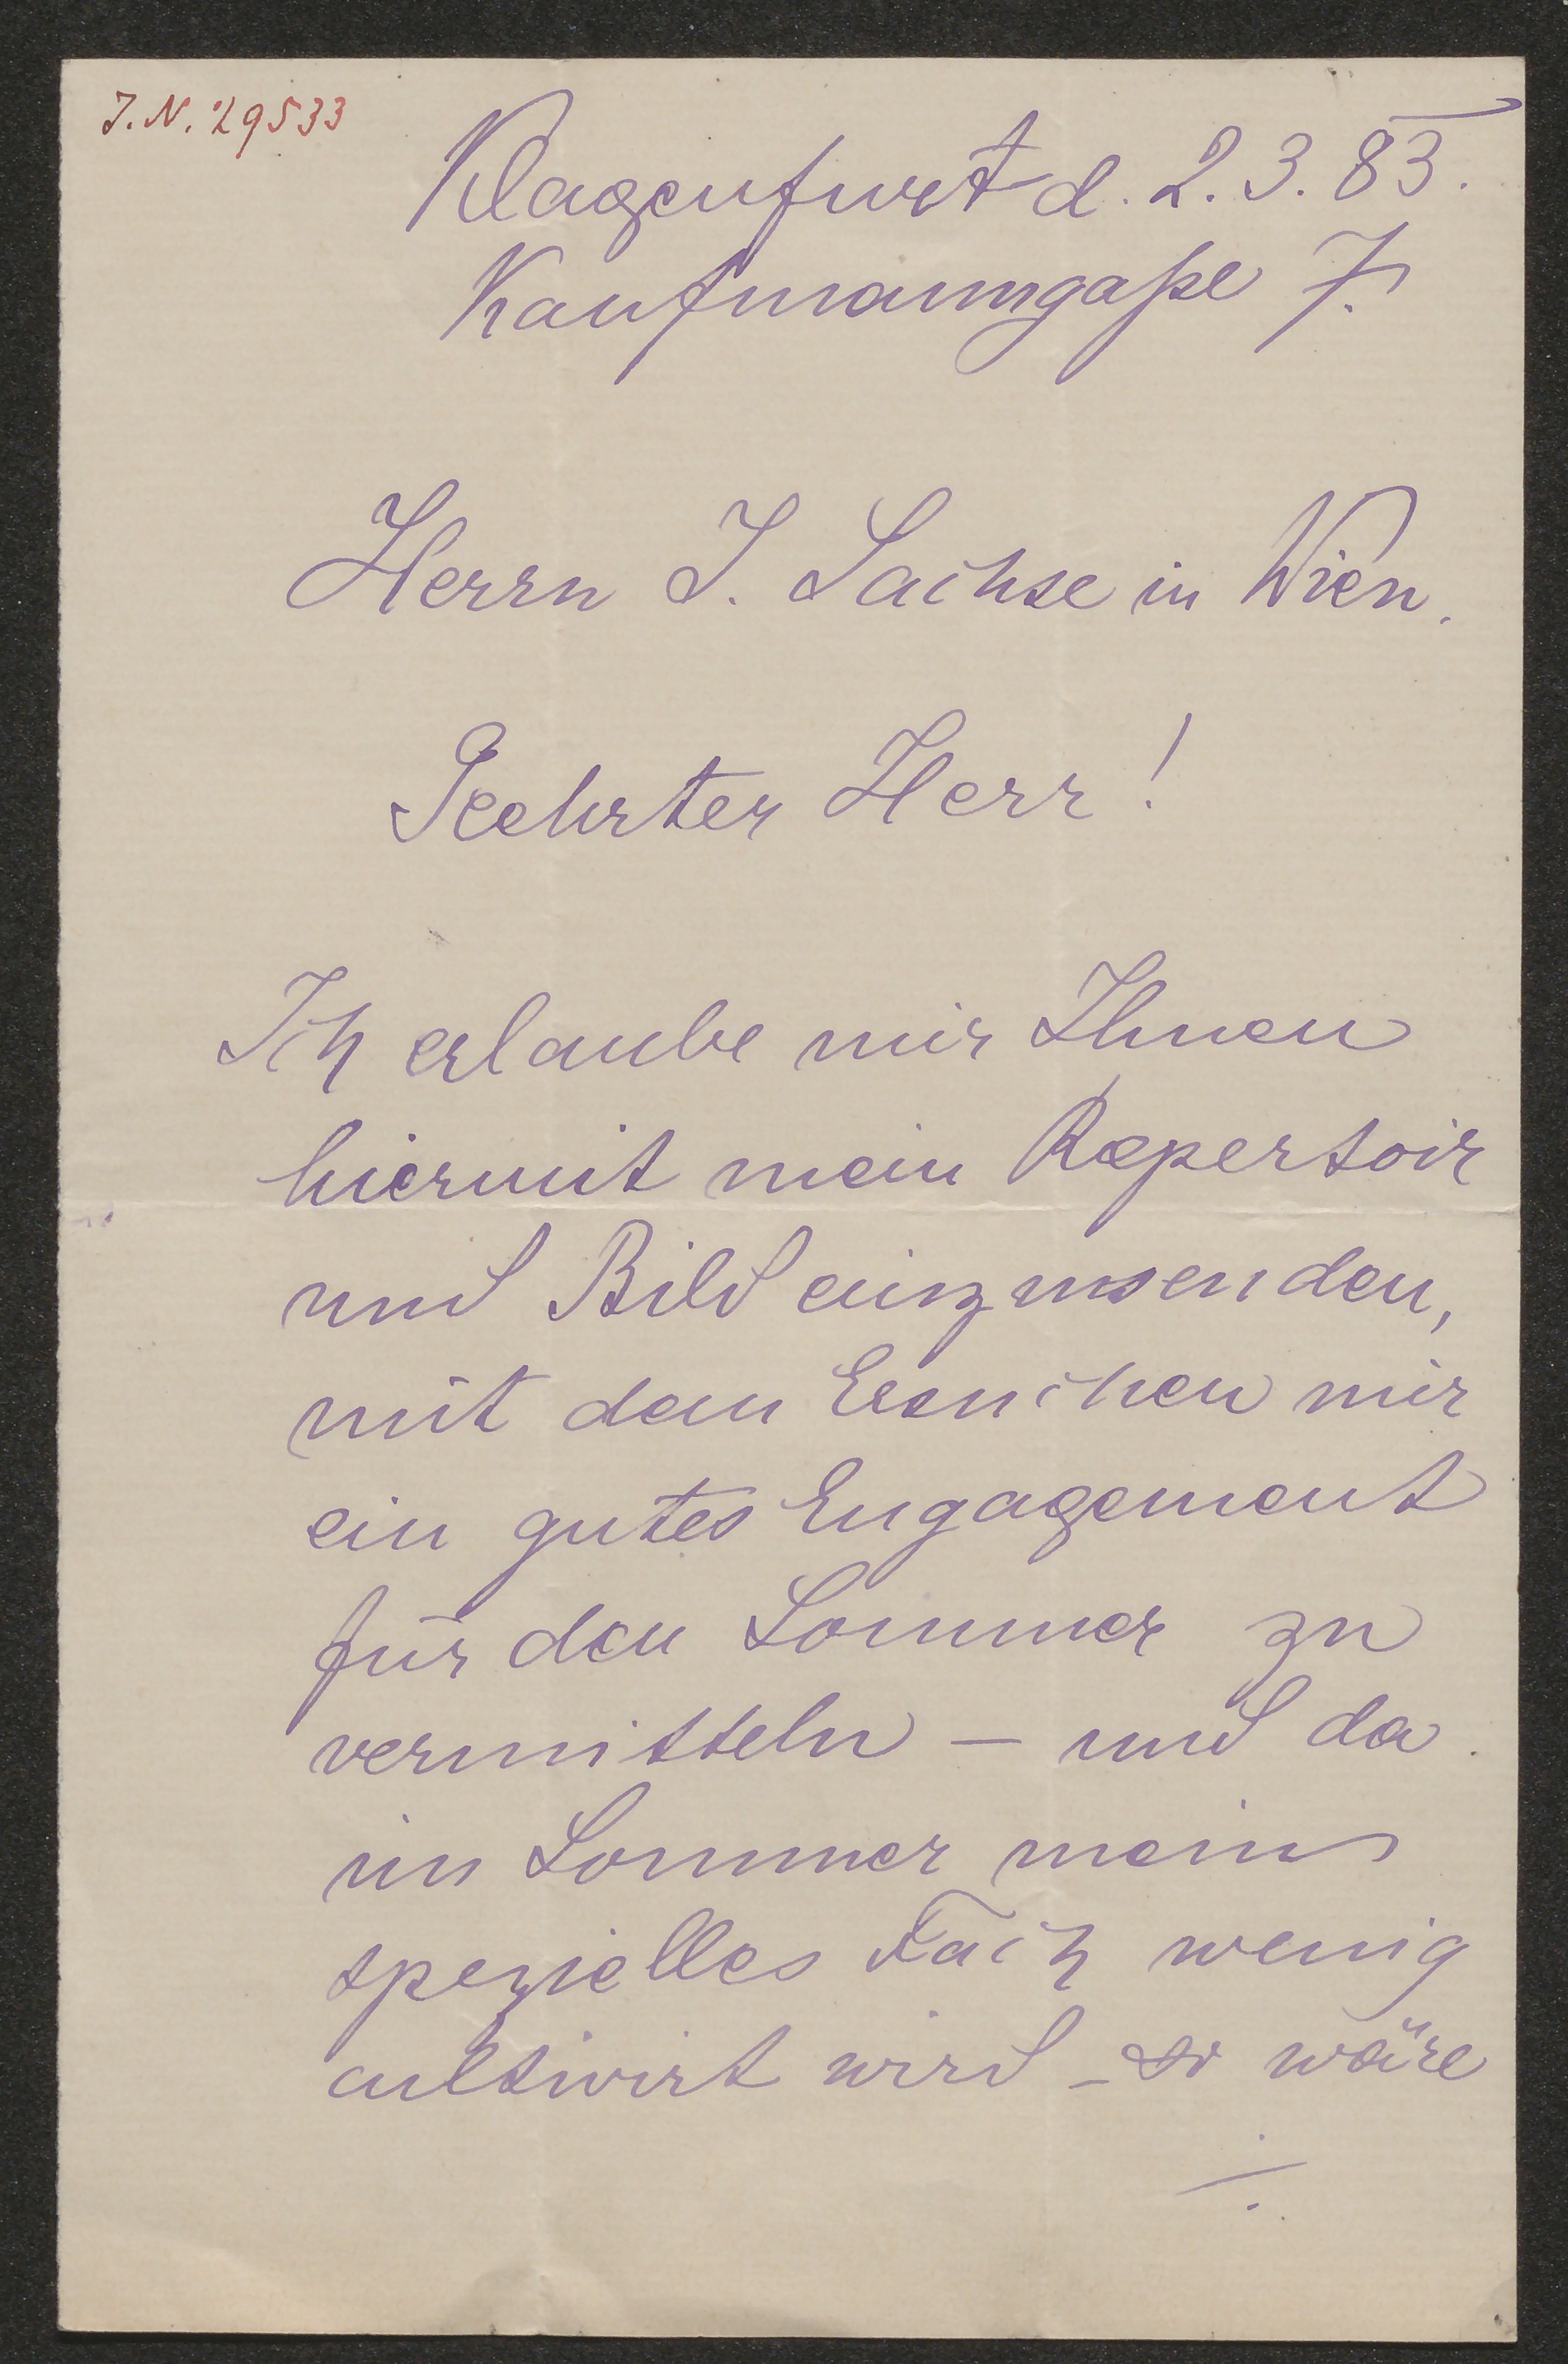 J.N. 29533
Klagenfurt d. 2. 3. 83.
Kaufmanngaße 7.
Herrn J. Sachse in Wien.
Geehrter Herr!
Ich erlaube mir Ihnen
hiermit mein Repertoir
und Bild einzusenden,
mit dem Ersuchen mir
ein gutes Engagement
für den Sommer zu
vermitteln – und da
im Sommer mein
spezielles Fach wenig
cultivirt wird – so wäre
./.